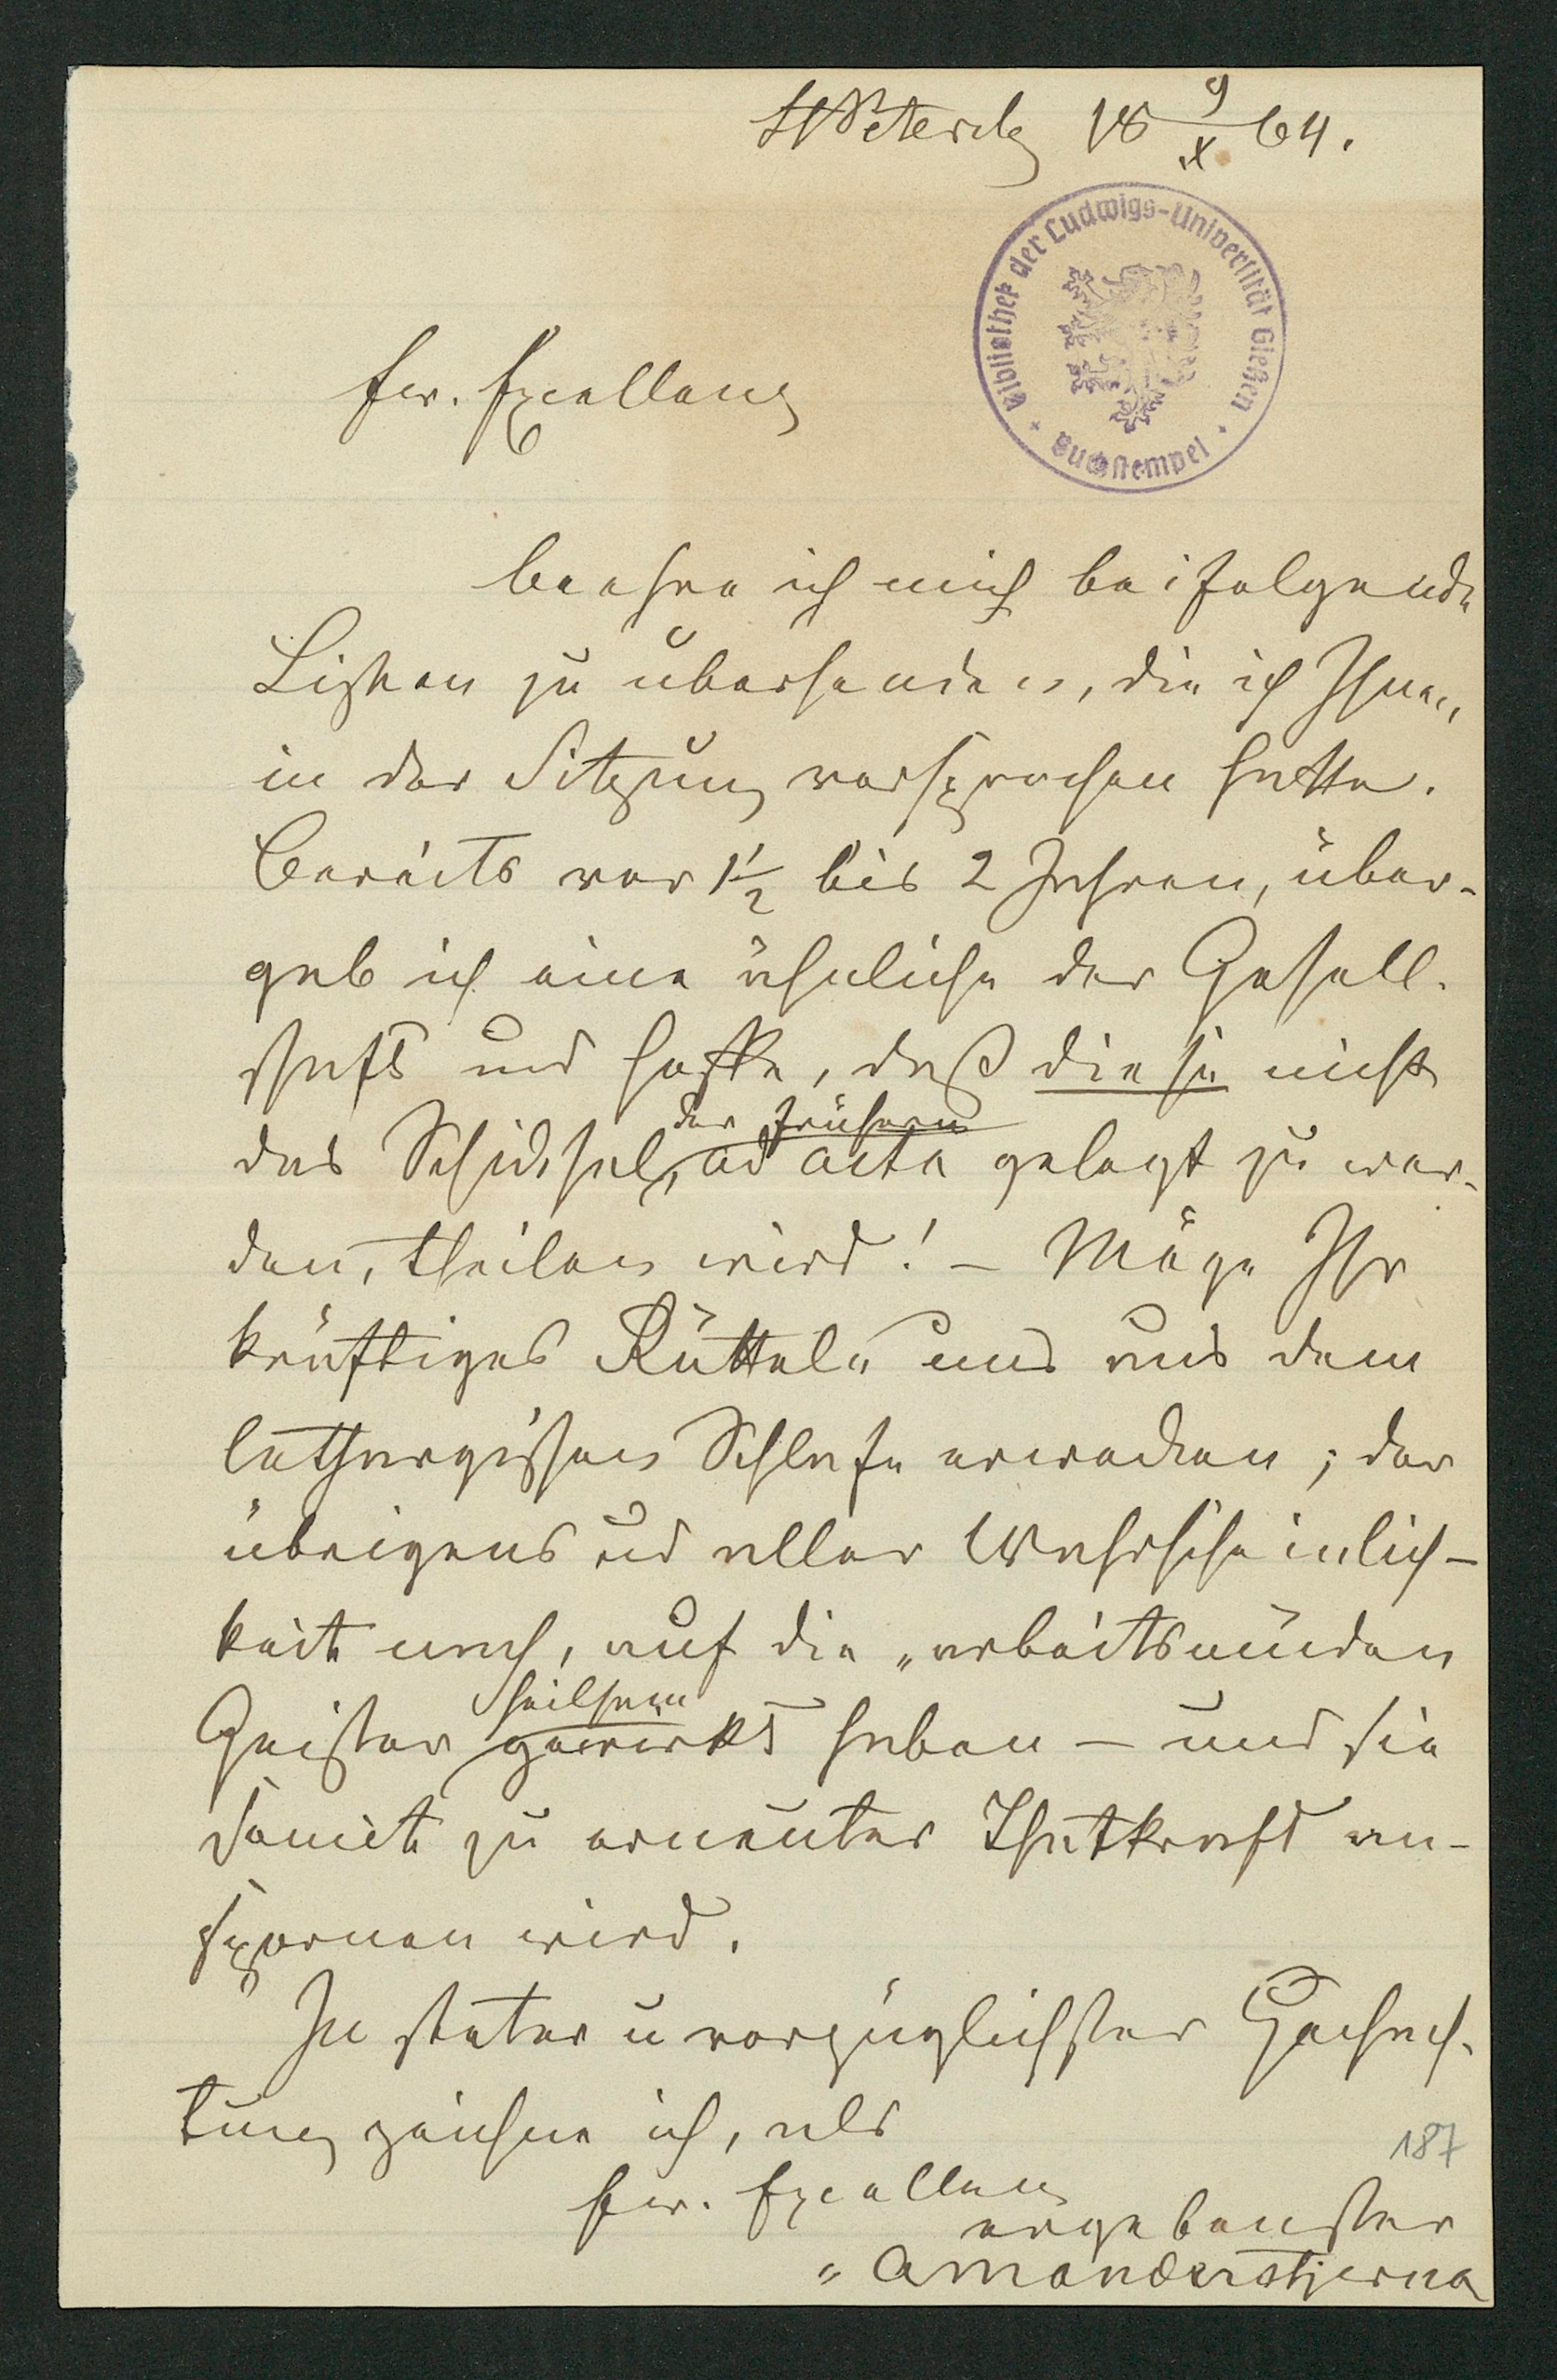 StPetersbg 18 9/X 64.
Bibliothek der Ludwigs-Universität Gießen
+ Buchstempel +
Ew. Excellenz
beehre ich mich beifolgende
Listen zu übersenden, die ich Ihnen
in der Sitzung versprochen hatte.
Bereits vor 1½ bis 2 Jahren, über-
gab ich eine ähnliche der Gesell-
schaft und hoffe, daß diese nicht
der frühern
das Schicksal, ad acta gelegt zu wer-
den, theilen wird! – Möge Ihr
kräftiges Rütteln uns aus dem
lethargischen Schlafe erwecken; der
übrigens aller Wahrscheinlich-
keit nach, auf die „arbeitsmüden
heilsam
Geister gewirkt haben – und sie
somit zu erneuter Thatkraft an-
spornen wird.
In steter u vorzüglichster Hochach-
tung zeichne ich, als
187
Ew. Excellenz
ergebenster
Amanderstjerna